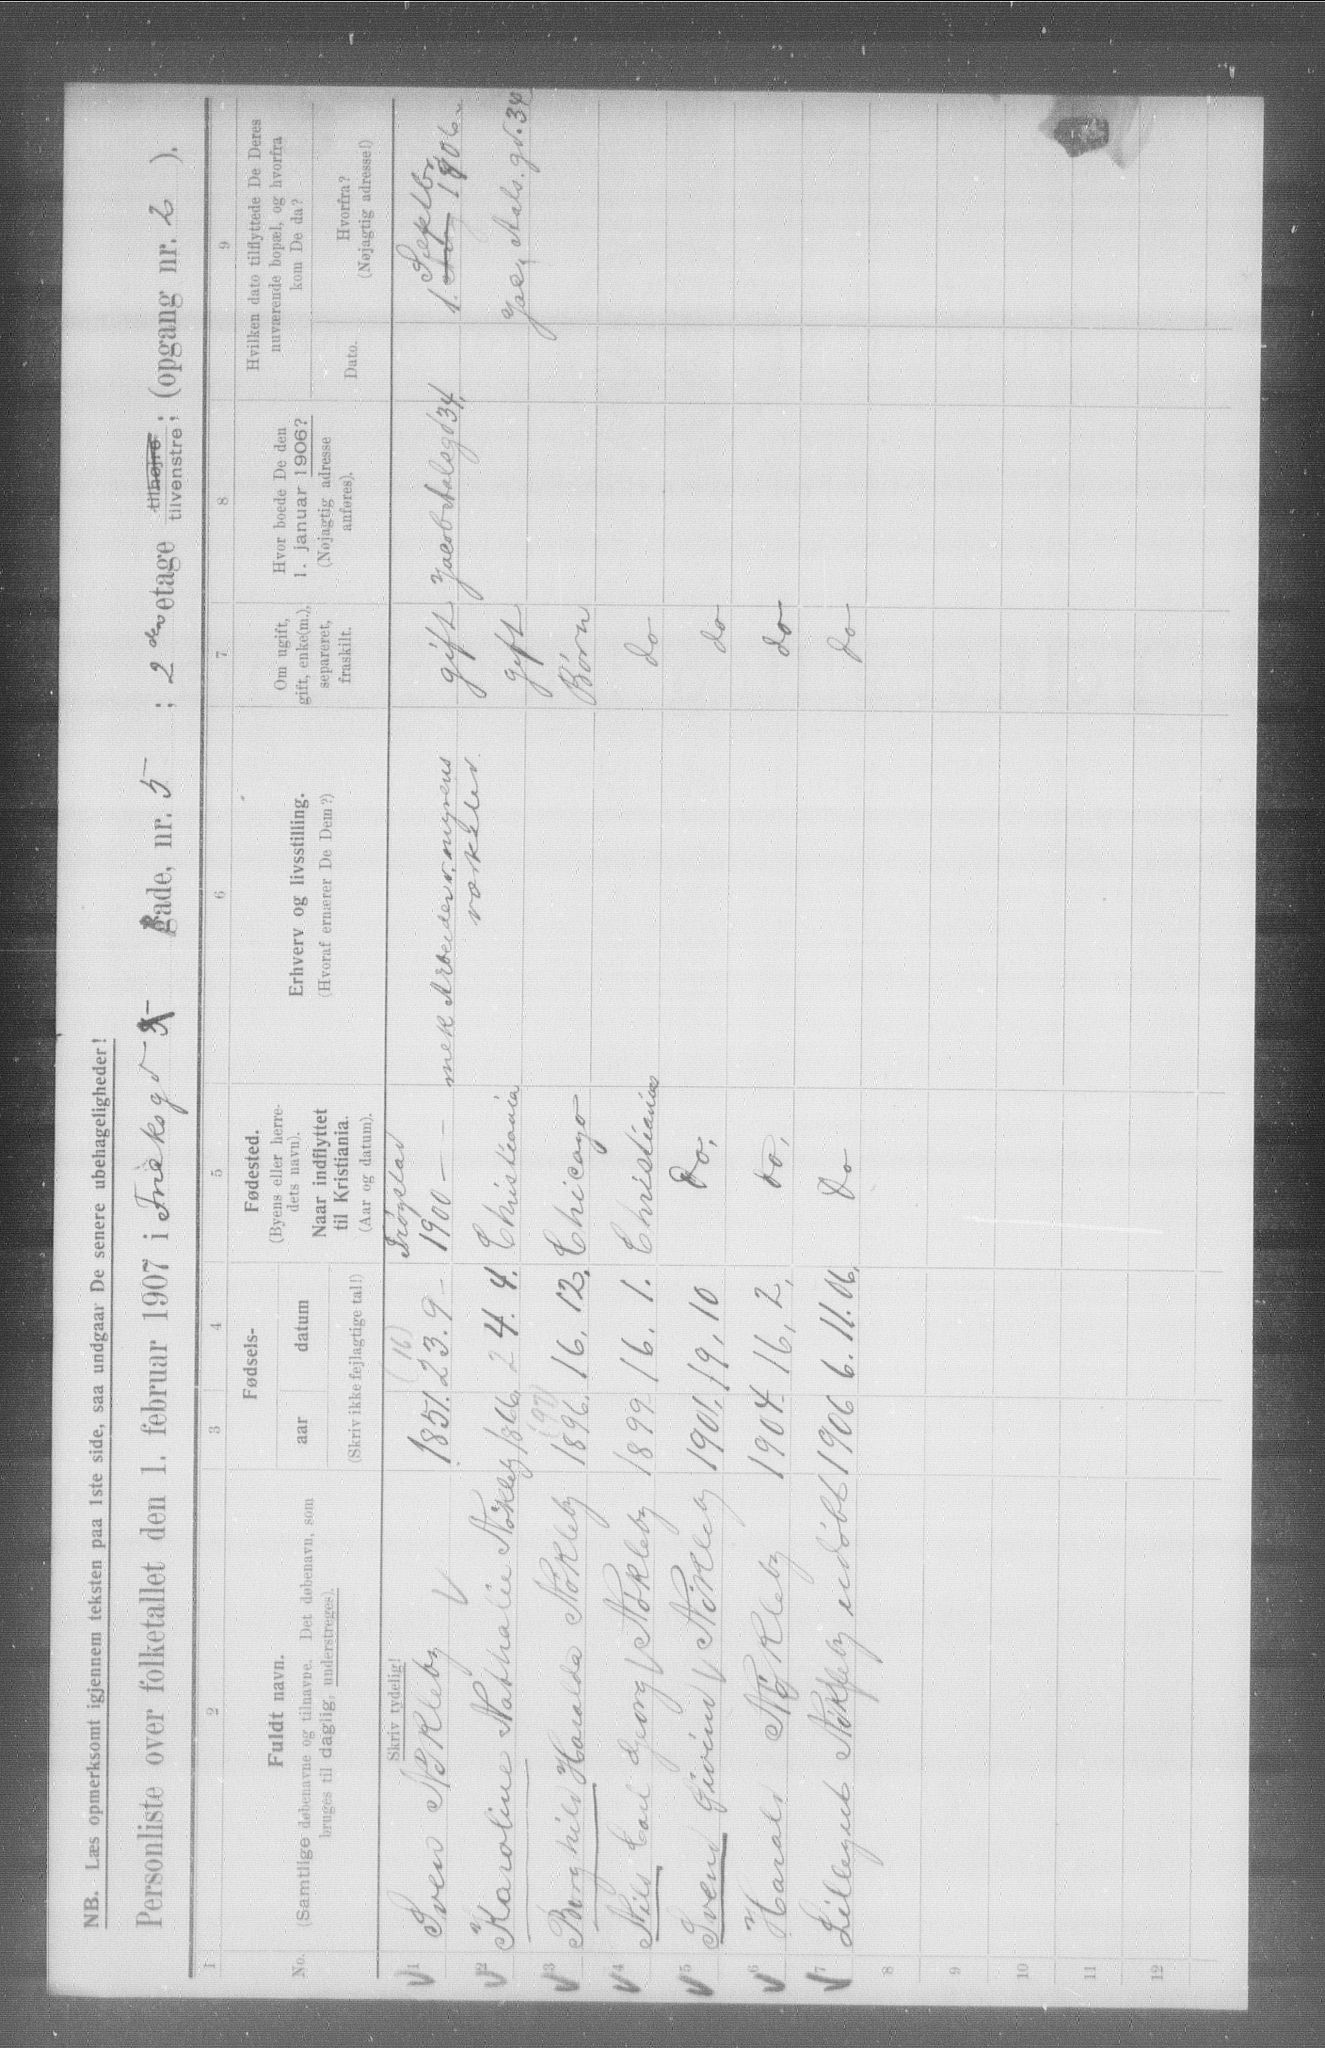 NB. Læs opmerksomt igjennem teksten paa 1ste side, saa undgaar De senere ubehageligheder!
Personliste over folketallet den 1. februar 1907 i gade, nr. 5 ; 2den etage tilhøire tilvenstre; (opgang nr. 2 ).
1 2 3 4 5 6 7 8 9
No.
Fuldt navn.
(Samtlige døbenavne og tilnavne. Det døbenavn, som
bruges til daglig, understreges).
Fødsels-
aar datum
(Skriv ikke fejlagtige tal!)
Fødested.
(Byens eller herre-
dets navn).
Naar indflyttet
til Kristiania.
(Aar og datum).
Erhverv og livsstilling.
(Hvoraf ernærer De Dem?)
Om ugift,
gift, enke(m.),
separeret,
fraskilt.
Hvor boede De den
1. januar 1906?
(Nøjagtig adresse
anføres).
Hvilken dato tilflyttede De Deres
nuværende bopæl, og hvorfra
kom De da?
Dato.
Hvorfra?
(Nøjagtig adresse!)
Skriv tydelig!
1 Sven Nökleby 1851. (16) 23. 9 Trögstad 1900 mek Arbeider myrens værksted gift Jacob Aalsgd 34, 1. Septbr 1906
2 Karoline Nathalie Nökleby 1866 24. 4. Christiania gift Jac. Aals. gd. 34
3 Borghild Haralda Nökleby 1896. (97) 16. 12. Chicago Börn
4 Nils Carl Georg Nökleby 1899 16. 1. Christiania do
5 Svend Eivind Nökleby 1901. 19. 10 do. do
6 Harald Nökleby 1904 16. 2. do. do
7 Lillegut Nökleby udöbt 1906 6. 11. 06. do do
8
9
10
11
12